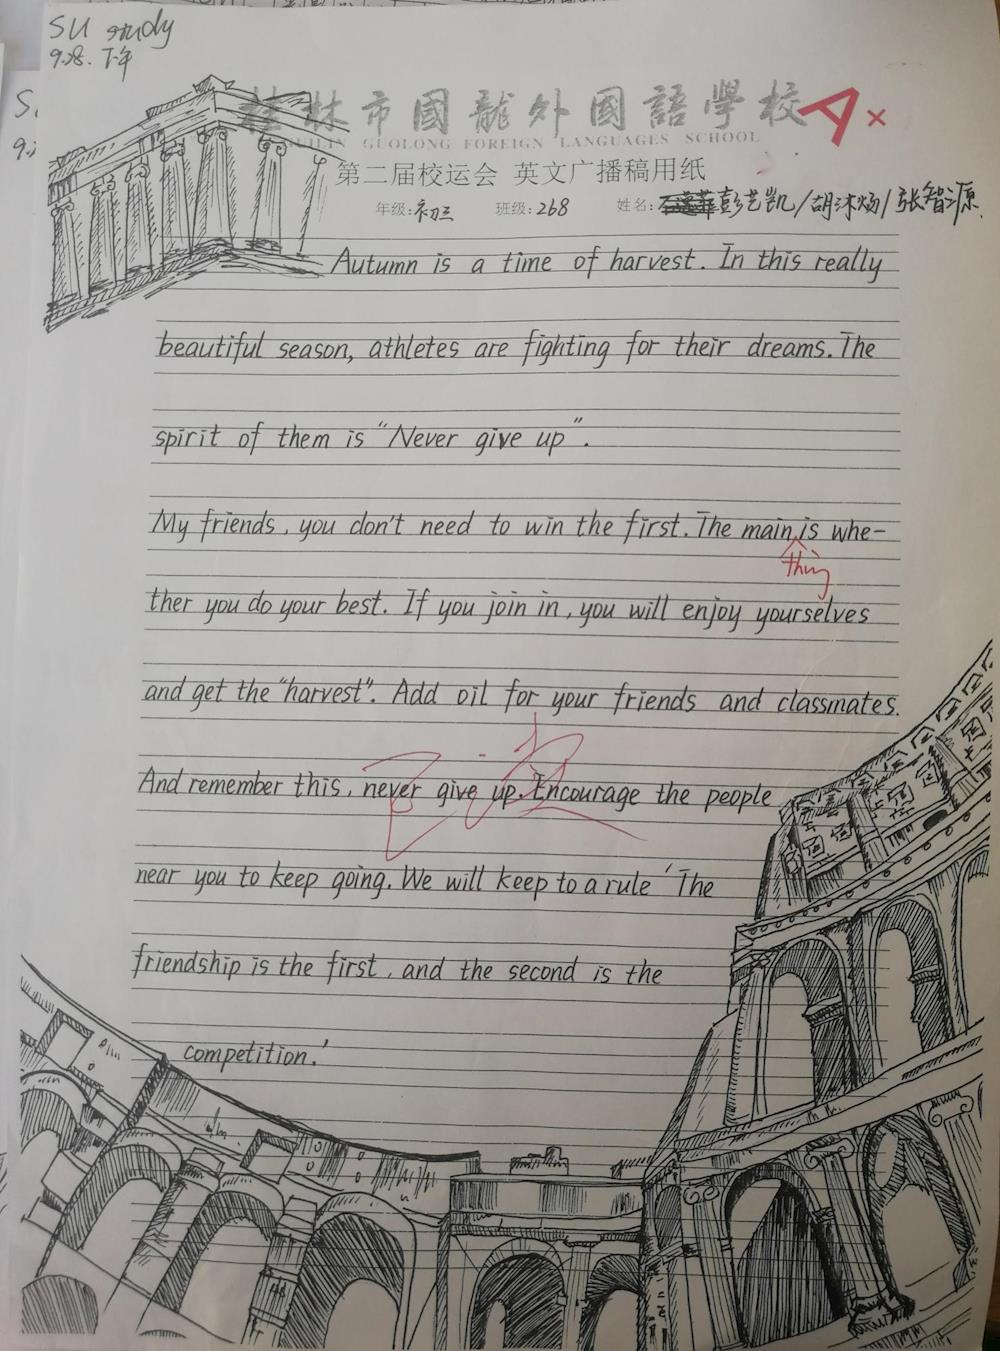 SU study
9.28. 下午
桂林市國龍外國語學校
GUILIN GUOLONG FOREIGN LANGUAGES SCHOOL
A
第二届校运会 英文广播稿用纸
年级:初三 班级:268 姓名: 彭艺凯/胡沐炀/张智源
Autumn is a time of harvest. In this really
beautiful season, athletes are fighting for their dreams. The
spirit of them is "Never give up".
My friends, you don't need to win the first. The main is whe-
thing
ther you do your best. If you join in, you will enjoy yourselves
and get the "harvest". Add oil for your friends and classmates.
And remember this, never give up. Encourage the people
near you to keep going. We will keep to a rule 'The
friendship is the first, and the second is the
competition.'